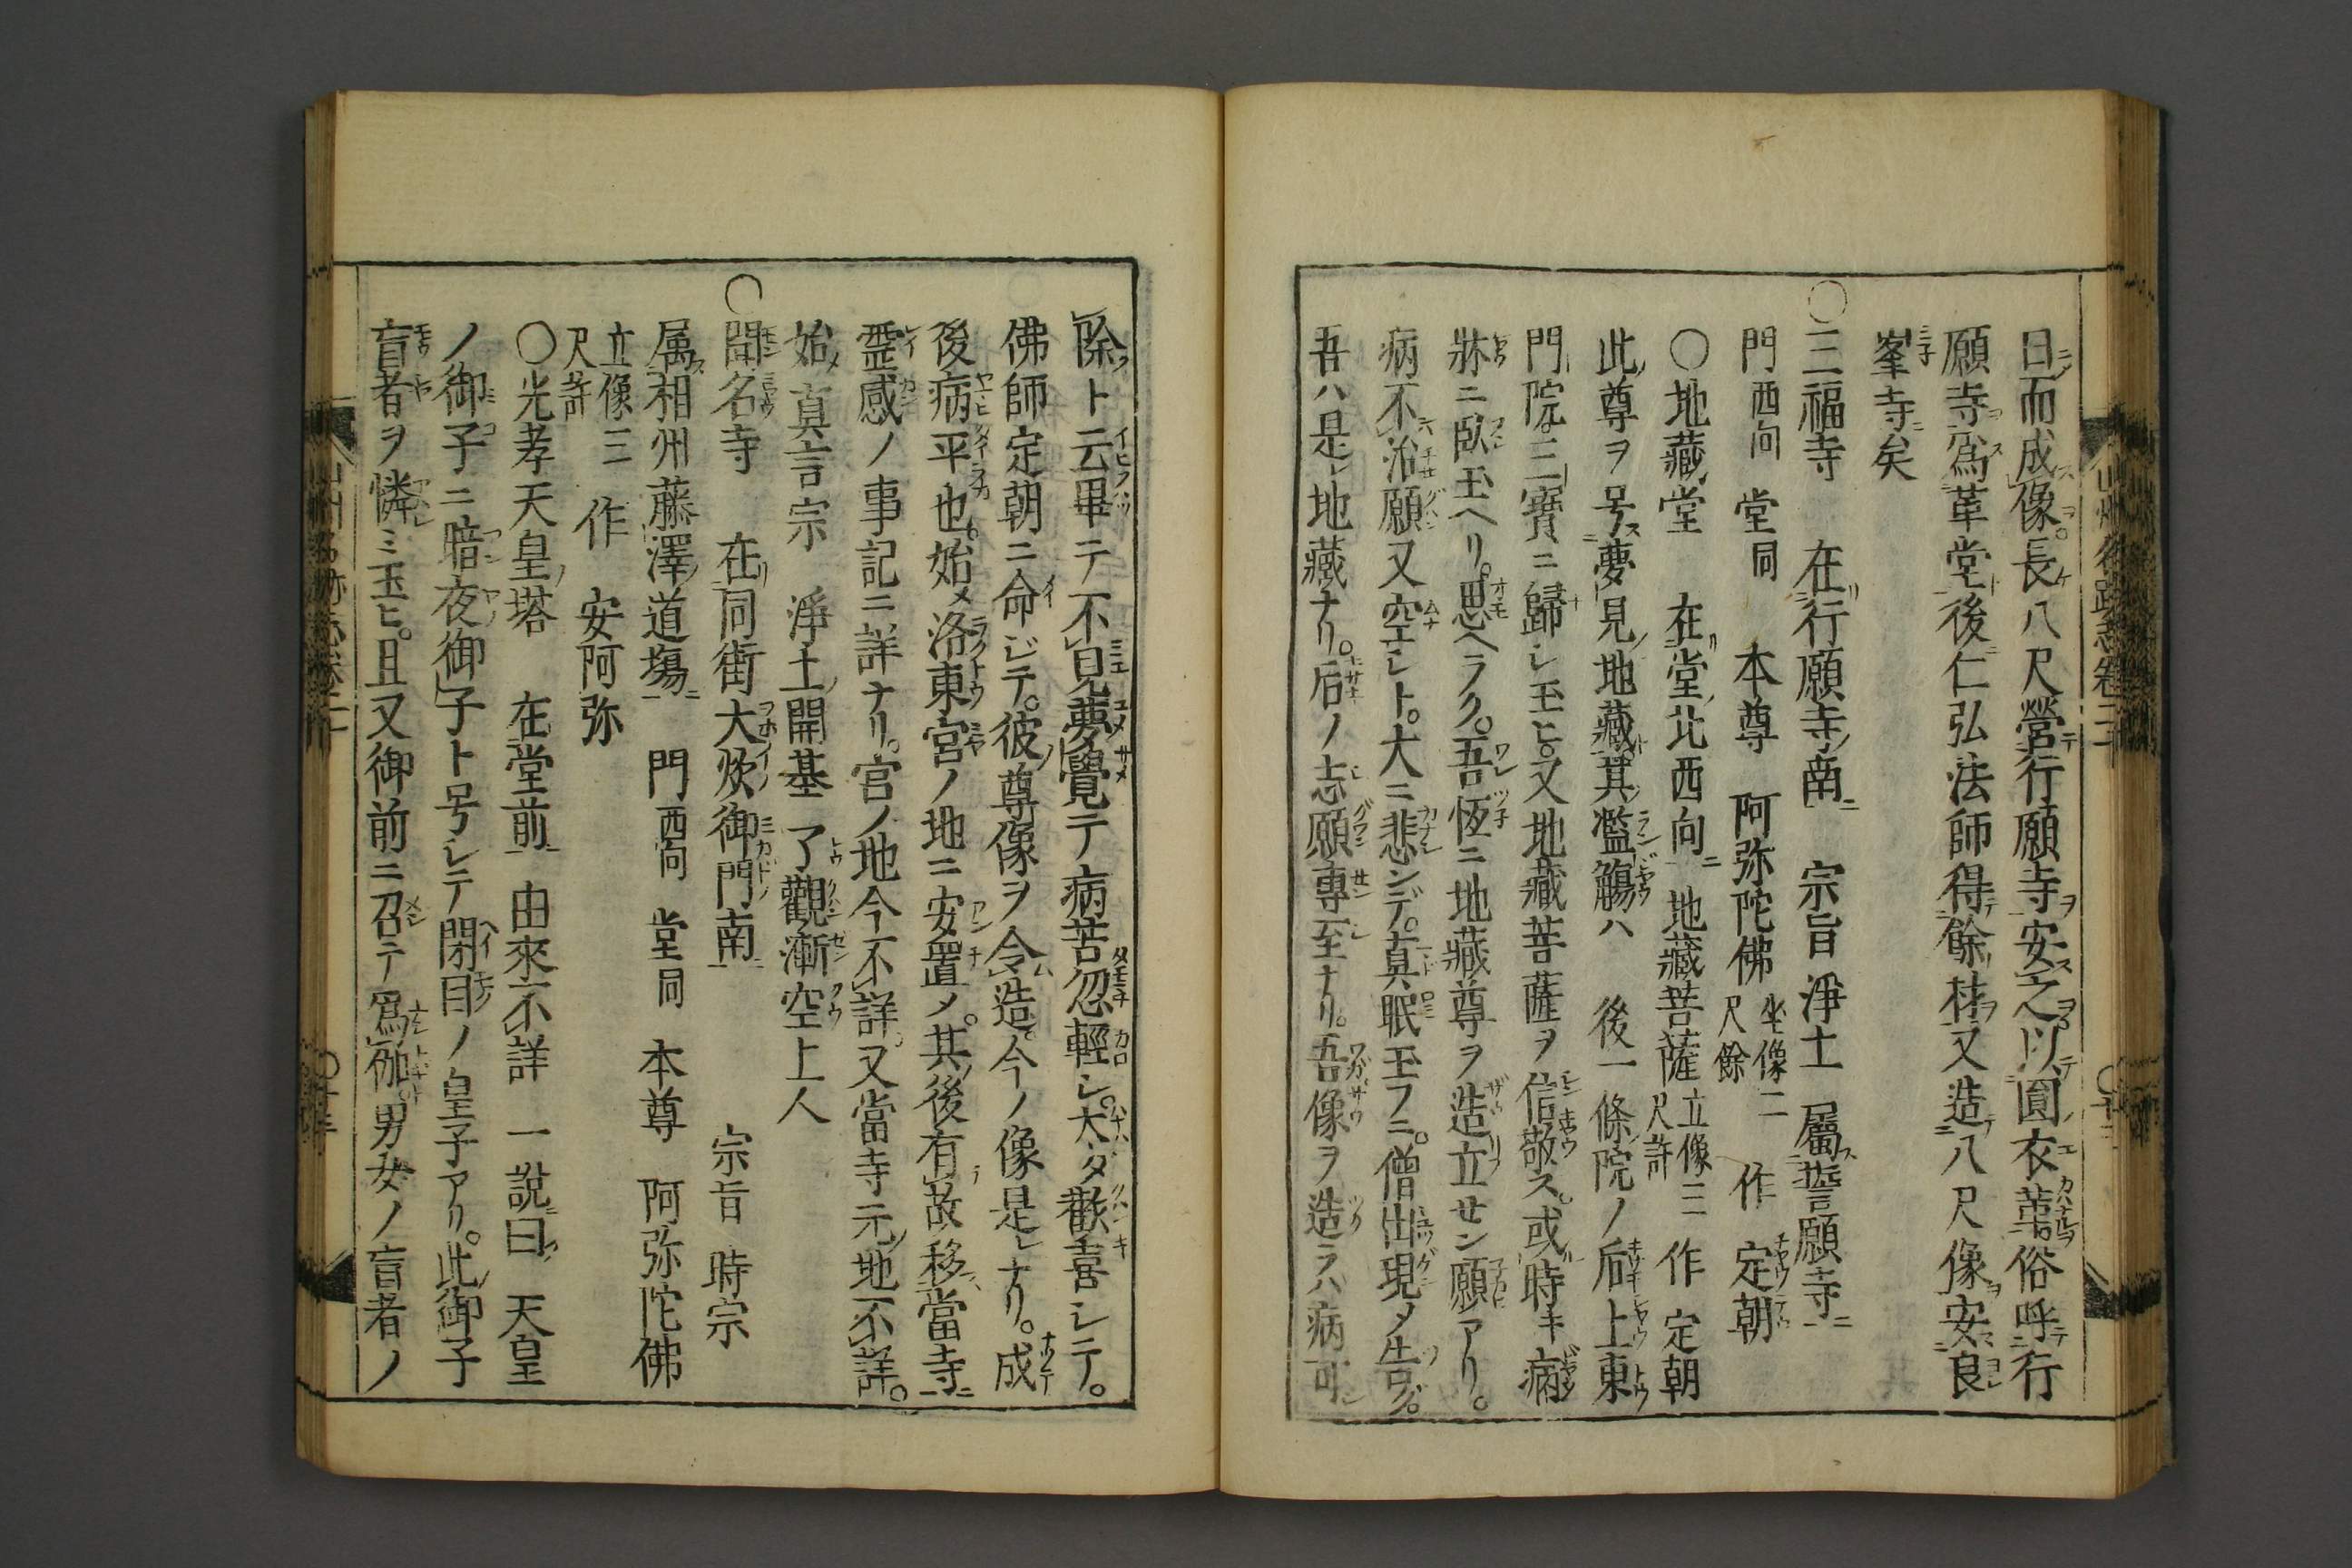 日而成像長八尺營行願寺安之以圓衣葉俗呼行
願寺爲革堂後仁弘法師得餘材又造八尺像安良
峯寺矣
○三福寺　在行願寺南　宗旨淨土　屬誓願寺
門西向　堂同　本尊　阿弥陀佛坐像二尺餘　作　定朝
○地藏堂　在堂北西向　地藏菩薩立像三尺許　作　定朝
此尊ヲ号夢見地藏其濫觴ハ　後一條院ノ后上東
門院三寶ニ歸シ玉ヒ。又地藏菩薩ヲ信敬ス。或時キ病
牀ニ臥玉ヘリ。思ヘラク。吾恆ニ地藏尊ヲ造立セン願アリ。
病不治願又空シト。大ニ悲ンデ。真眠玉フニ。僧出現メ告グ。
吾ハ是レ地藏ナリ。后ノ志願專至ナリ。吾像ヲ造ラハ病可
除ト云畢テ不見夢覺テ病苦忽輕シ。大ダ歡喜シテ。
佛師定朝ニ命ジテ。彼尊像ヲ令造。今ノ像是レナリ。成
後病平也。始メ洛東宮ノ地ニ安置メ。其後有故移當寺
霊感ノ事記ニ詳ナリ。宮ノ地今不詳。又當寺元地不詳。
始真言宗　淨土開基　了觀漸空上人
○聞名寺　在同街大炊御門南　宗旨　時宗
属相州藤澤道塲　門西向　堂同　本尊　阿弥陀佛
立像三尺許　作　安阿弥
○光孝天皇塔　在堂前　由來不詳　一說曰　天皇
ノ御子ニ暗夜御子ト号シテ閉目ノ皇子アリ。此御子
盲者ヲ憐ミ玉ヒ。且又御前ニ召テ爲伽。男女ノ盲者ノ